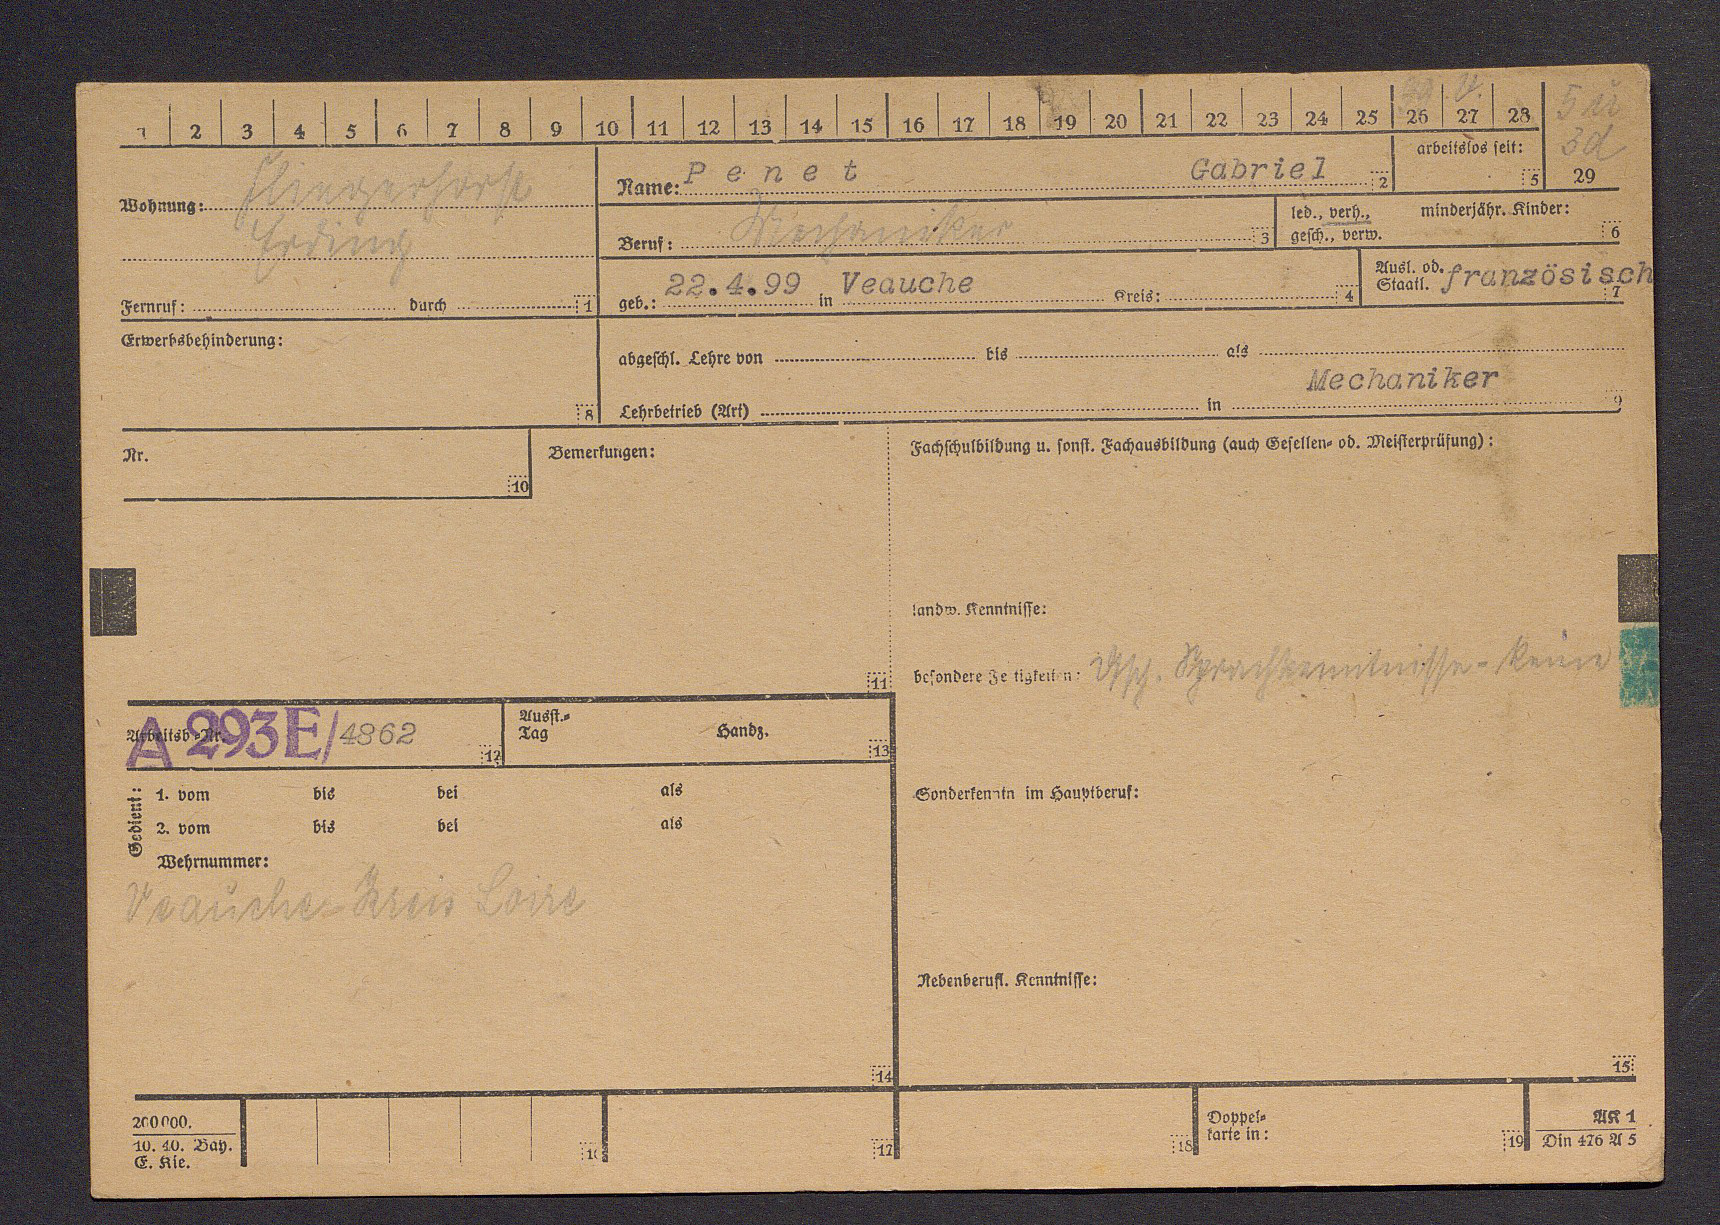 1 2 3 4 5 6 7 8 9 10 11 12 13 14 15 16 17 18 19 20 21 22 23 24 25 26 27 28
5 u
3d
29
Wohnung: Fliegerhorst
Erding
Fernruf: durch 1
Name: Penet Gabriel 2
arbeitslos seit: 5
Beruf: Mechaniker 3
led., verh., minderjähr. Kinder:
gesch., verw. 6
geb.: 22.4.99 in Veauche Kreis: 4
Ausl. od. französisch
Staatl. 7
Erwerbsbehinderung: 8
abgeschl. Lehre von bis als
Mechaniker
Lehrbetrieb (Art) in 9
Nr. 10
Bemerkungen: 11
Fachschulbildung u. sonst. Fachausbildung (auch Gesellen- od. Meisterprüfung):
landw. Kenntnisse:
besondere Fertigkeiten: Dtsch. Sprachkenntnisse - keine
Arbeitsb.-Nr. A 293E/4862 12
Ausst.-
Tag Handz. 13
Gedient:
1. vom bis bei als
2. vom bis bei als
Wehrnummer:
Veauche Kreis Loire
14
Sonderkenntn im Hauptberuf:
Nebenberufl. Kenntnisse:
15
200000.
10. 40. Bay.
E. Kie.
16
17
18
Doppel-
karte in: 19
AK 1
Din 476 A 5